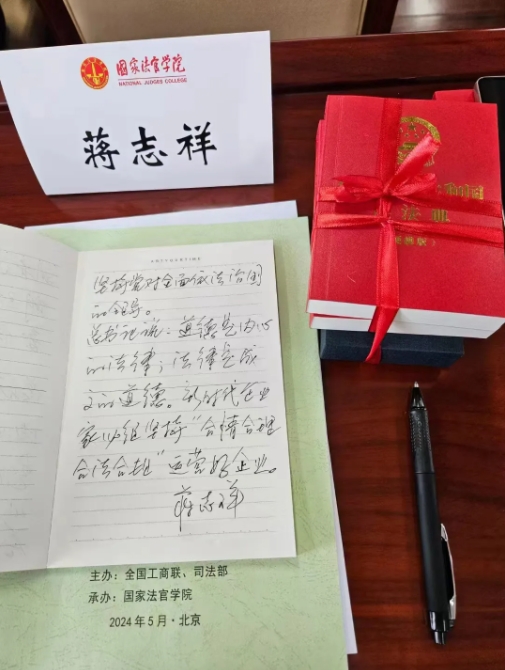 国家法官学院
NATIONAL JUDGES COLLEGE
蒋志祥
坚持党对全面依法治国
的领导。
总书记说：道德是内心
的法律；法律是成
文的道德。新时代企业
家必须坚持“合情合理
合法合规”运营好企业。
蒋志祥
主办：全国工商联、司法部
承办：国家法官学院
2024年5月·北京